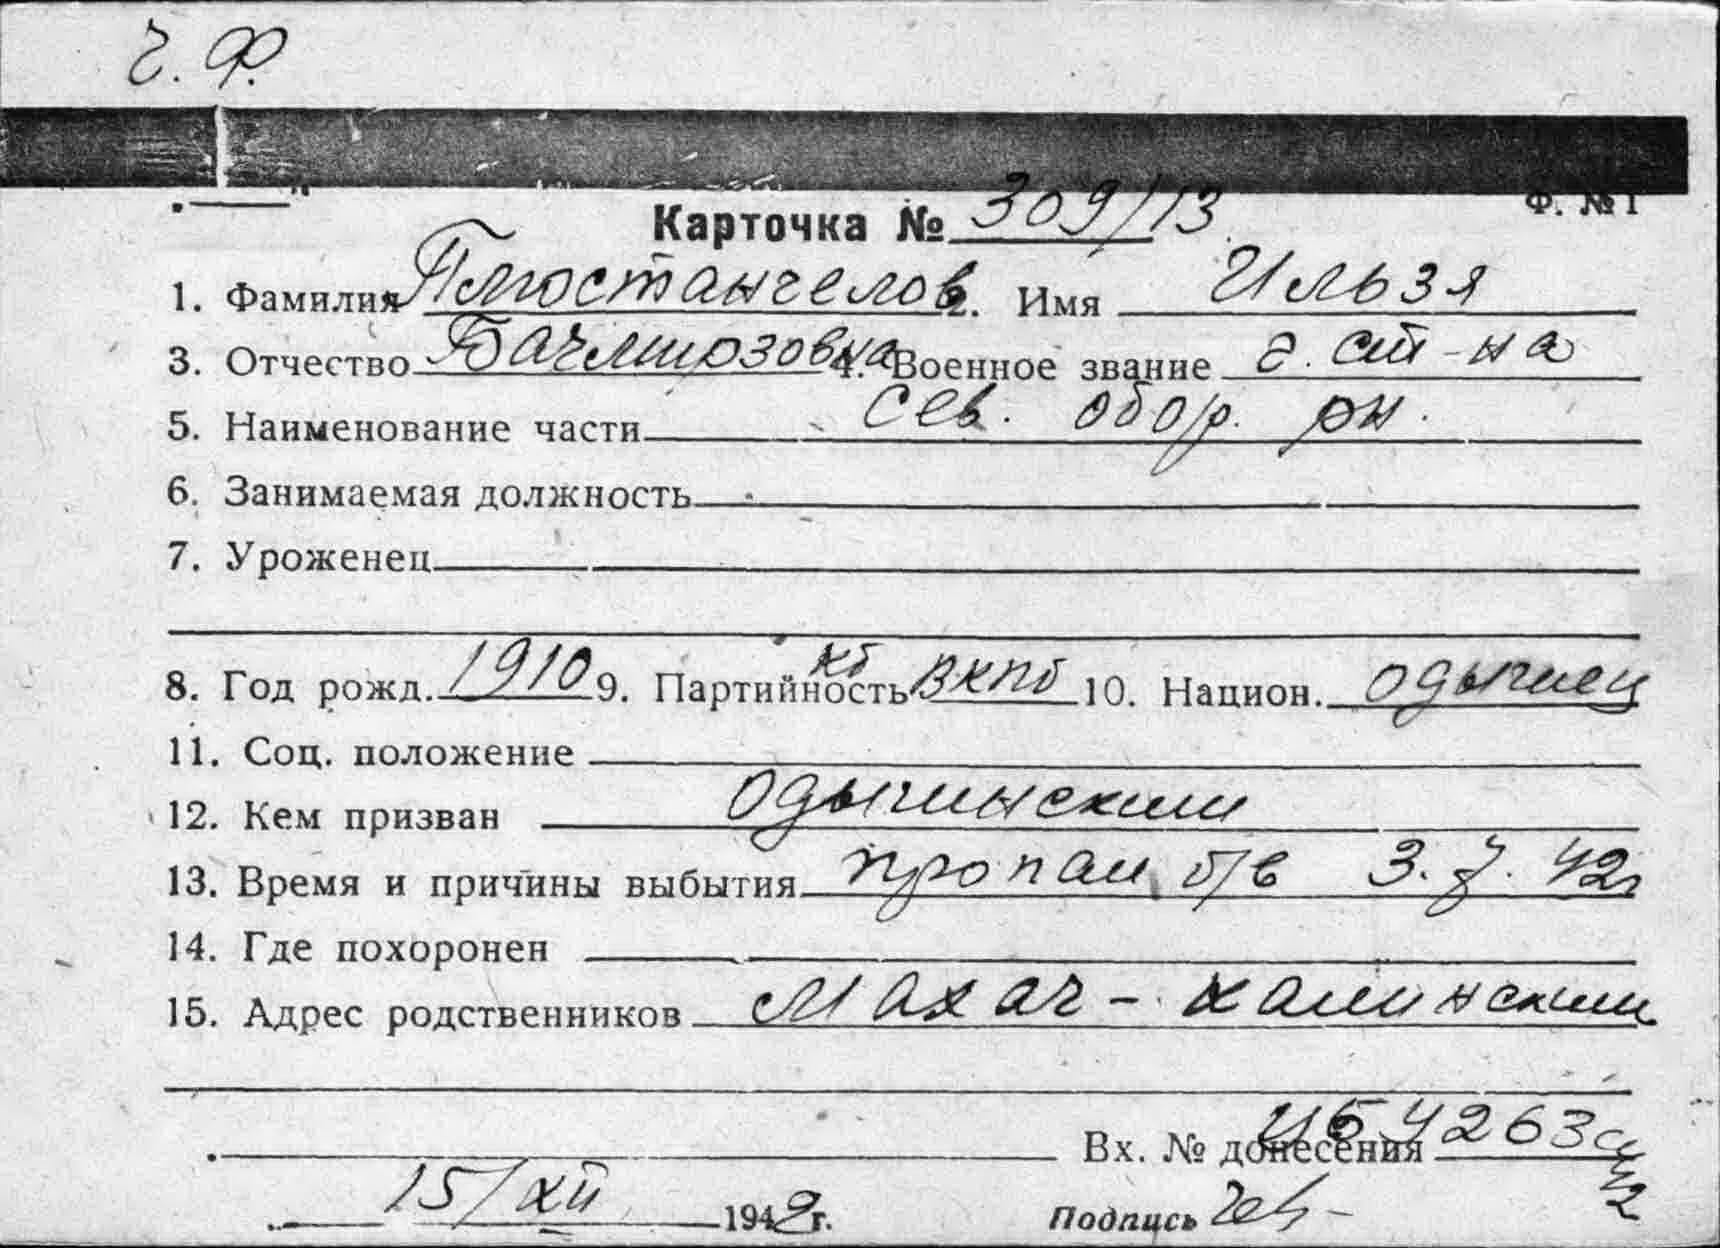 Ч. Ф.
Ф. № 1
Карточка № 309/13
1. Фамилия Плюстангелов 2. Имя Ильзя
3. Отчество Бачмирзовна 4. Военное звание г. ст-на
5. Наименование части сев. обор. рн.
6. Занимаемая должность
7. Уроженец
8. Год рожд. 1910 9. Партийность кб ВКПб 10. Национ. Одыгиец
11. Соц. положение
12. Кем призван Одыгинским
13. Время и причины выбытия пропал б/в 3.7.42г
14. Где похоронен
15. Адрес родственников Махач-калинским
Вх. № донесения 4263с
15/XII 1942г. Подпись